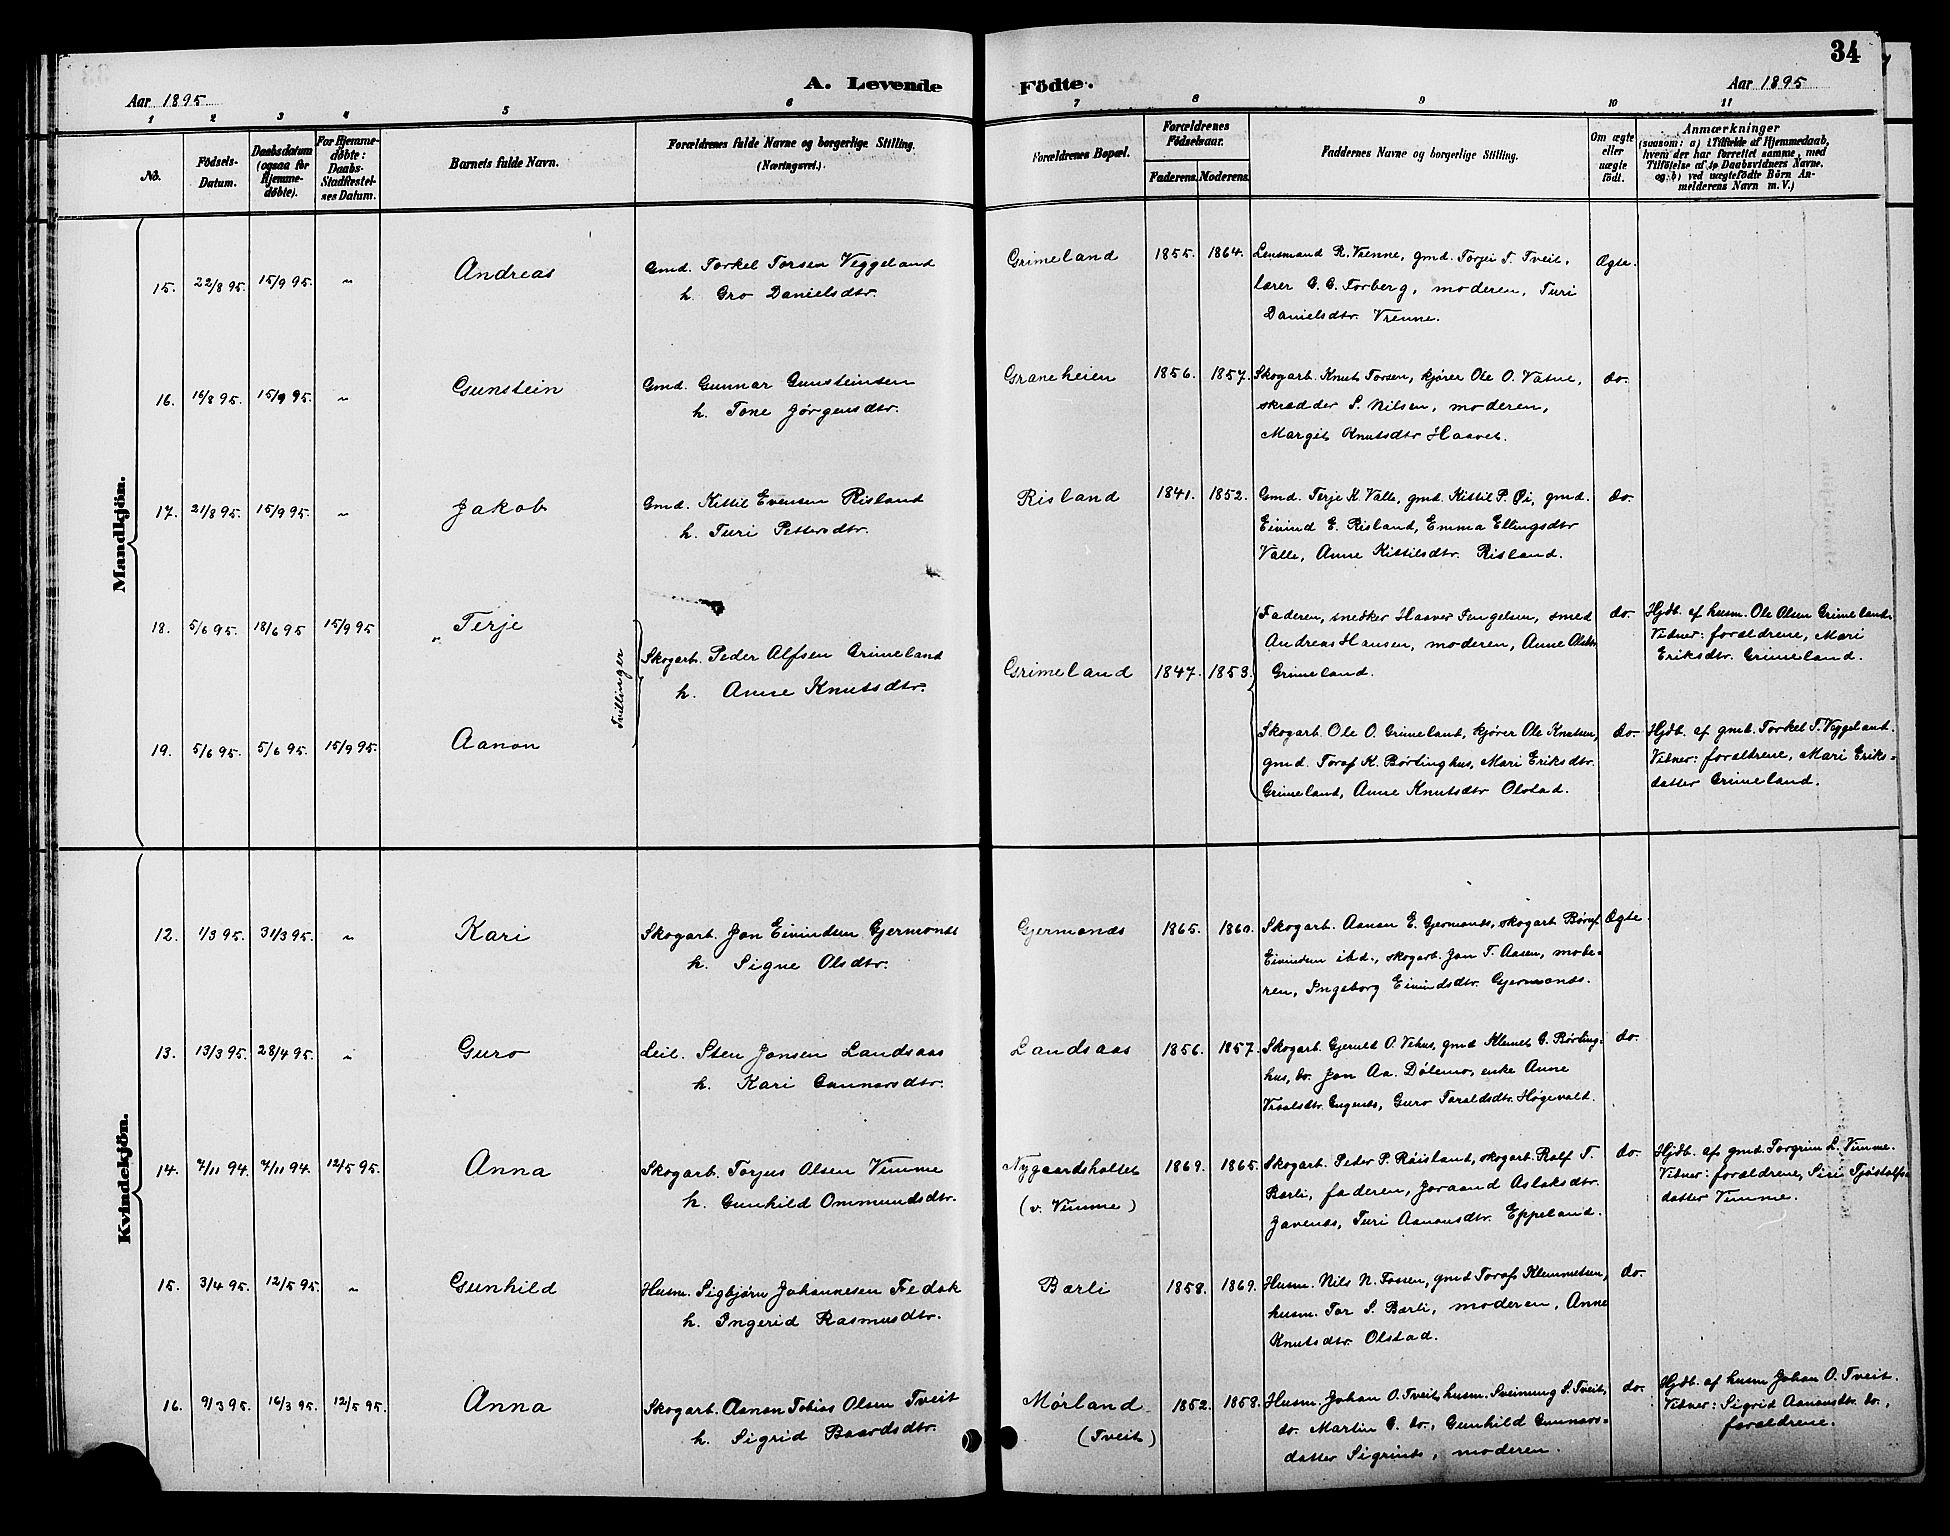 34
Aar 1895
A. Levende Födte.
Aar 1895
1 2 3 4 5 6 7 8 9 10 11
No.
Födsels-Datum.
Daabsdatum (ogsaa for Hjemme-døbte).
For Hjemme-døbte: Daabs-Stadfæstel-ses Datum.
Barnets fulde Navn.
Forældrenes fulde Navne og borgerlige Stilling. (Næringsvei.)
Forældrenes Bopæl.
Forældrenes Fødselsaar.
Faderens. Moderens.
Faddernes Navne og borgerlige Stilling.
Om ægte eller uægte født.
Anmærkninger
(saasom: a) i Tilfælde af Hjemmedaab, hvem der har forrettet samme, med Tilföielse af to Daabsvidners Navne. og b) ved uægtefödte Börn An-melderens Navn m. V.)
Mandkjön.
15. 22/8 95. 15/9 95. " Andreas
Gmd. Torkel Torsen Veggeland
h. Gro Danielsdtr.
Grimeland 1855. 1864.
Lensmand R. Vrenne, gmd. Torjei T. Tveit,
lærer G. G. Forberg, moderen, Turi
Danielsdtr. Vrenne.
Ægte.
16. 16/8 95. 15/9 95. " Gunstein
Gmd. Gunnar Gunsteinsen
h. Tone Jørgensdtr.
Graneheien 1856. 1857.
Skogarb. Knut Torsen, kjører Ole O. Vatne,
skrædder S. Nilsen, moderen,
Margit Knutsdtr Haavet.
do.
17. 21/8 95. 15/9 95. " Jakob
Gmd. Kittil Evensen Risland
h. Turi Pettersdtr.
Risland 1841. 1852.
Gmd. Terje K. Valle, gmd. Kittil P. Øi, gmd.
Eivind E. Risland, Emma Ellingsdtr
Valle, Anne Kittilsdtr. Risland.
do.
18. 5/6 95. 18/6 95 15/9 95 Terje
Tvillinger
Skogarb. Peder Alfsen Grimeland
h. Anne Knutsdtr.
Grimeland 1847. 1853.
Faderen, snedker Haaver Fengelsen, smed
Andreas Hansen, moderen, Anne Olsdtr
Grimeland.
do.
Hjdb. af husm. Ole Olsen Grimeland.
Vidner: forældrene, Mari
Eriksdtr. Grimeland.
19. 5/6 95. 5/6 95. 15/9 95. Aanon
Skogarb. Ole O. Grimeland, kjører Ole Knutsen,
gmd. Toraf K. Børlinghus, Mari Eriksdtr.
Grimeland, Anne Knutsdtr Olstad.
do.
Hjdb. af gmd. Torkel T. Veggeland.
Vidner: forældrene, Mari Eriks-
datter Grimeland.
Kvindekjön.
12. 1/3 95. 31/3 95. " Kari
Skogarb. Jon Eivindsen Gjermonds
h. Signe Olsdtr.
Gjermonds 1865. 1860.
Skogarb. Aanon E. Gjermonds, skogarb. Børuf
Eivindsen ibd., skogarb. Jon T. Aasen, mode-
ren, Ingeborg Eivindsdtr. Gjermonds.
Ægte.
13. 13/3 95. 28/4 95. " Guro
Leil. Sten Jonsen Landsaas
h. Kari Gunnarsdtr.
Landsaas 1856. 1857.
Skogarb. Gjeruld O. Vehus, gmd Klemet G. Børling-
hus, do. Jon Aa. Dølemo, enke Anne
Vraalsdtr. Engenes, Guro Taraldsdtr. Høgevald.
do.
14. 7/11 94. 7/11 94. 12/5 95. Anna
Skogarb. Torjus Olsen Vimme
h. Gunhild Ommundsdtr.
Nygaardsholtet
(v. Vimme)
1869. 1865.
Skogarb. Peder P. Røisland, skogarb. Rolf T.
Bærli, faderen, Joraand Aslaksdtr.
Javenes, Turi Aanonsdtr. Eppeland.
do.
Hjdb. af gmd. Torgrim L. Vimme.
Vidner: forældrene, Siri Tjøstolfs-
datter Vimme.
15. 3/4 95. 12/5 95. " Gunhild
Husm. Sigbjørn Johannesen Fedak
h. Ingerid Rasmusdtr.
Bærli 1858. 1869.
Husm. Nils N. Fossen, gmd Toraf Klemmetsen,
husm. Tor S. Bærli, moderen, Anne
Knutsdtr. Olstad.
do.
16. 9/3 95. 16/3 95. 12/5 95. Anna
Skogarb. Aanon Tobias Olsen Tveit
h. Sigrid Baardsdtr.
Mørland
(Tveit)
1852. 1858.
Husm. Johan O. Tveit, husm. Sveinung S. Tveit,
do. Martin G. do., Gunhild Gunnars-
datter Sigrinds, moderen.
do.
Hjdb. af husm Johan O. Tveit.
Vidner: Sigrid Aanonsdtr. do.,
forældrene.